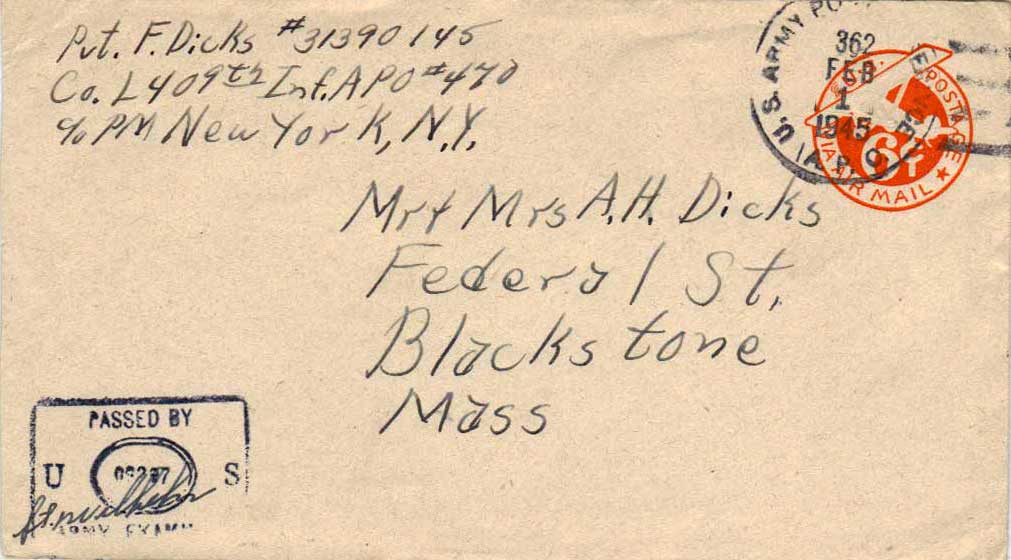 Pvt. F. Dicks #31390145
Co. L 409th Inf. APO #470
c/o PM New York, N.Y.
U.S. ARMY
362
FEB
1
1945
A.P.O.
POSTAGE
6¢
VIA AIR MAIL
Mr + Mrs A.H. Dicks
Federal St.
Blackstone
Mass
PASSED BY
U S
ARMY EXAM